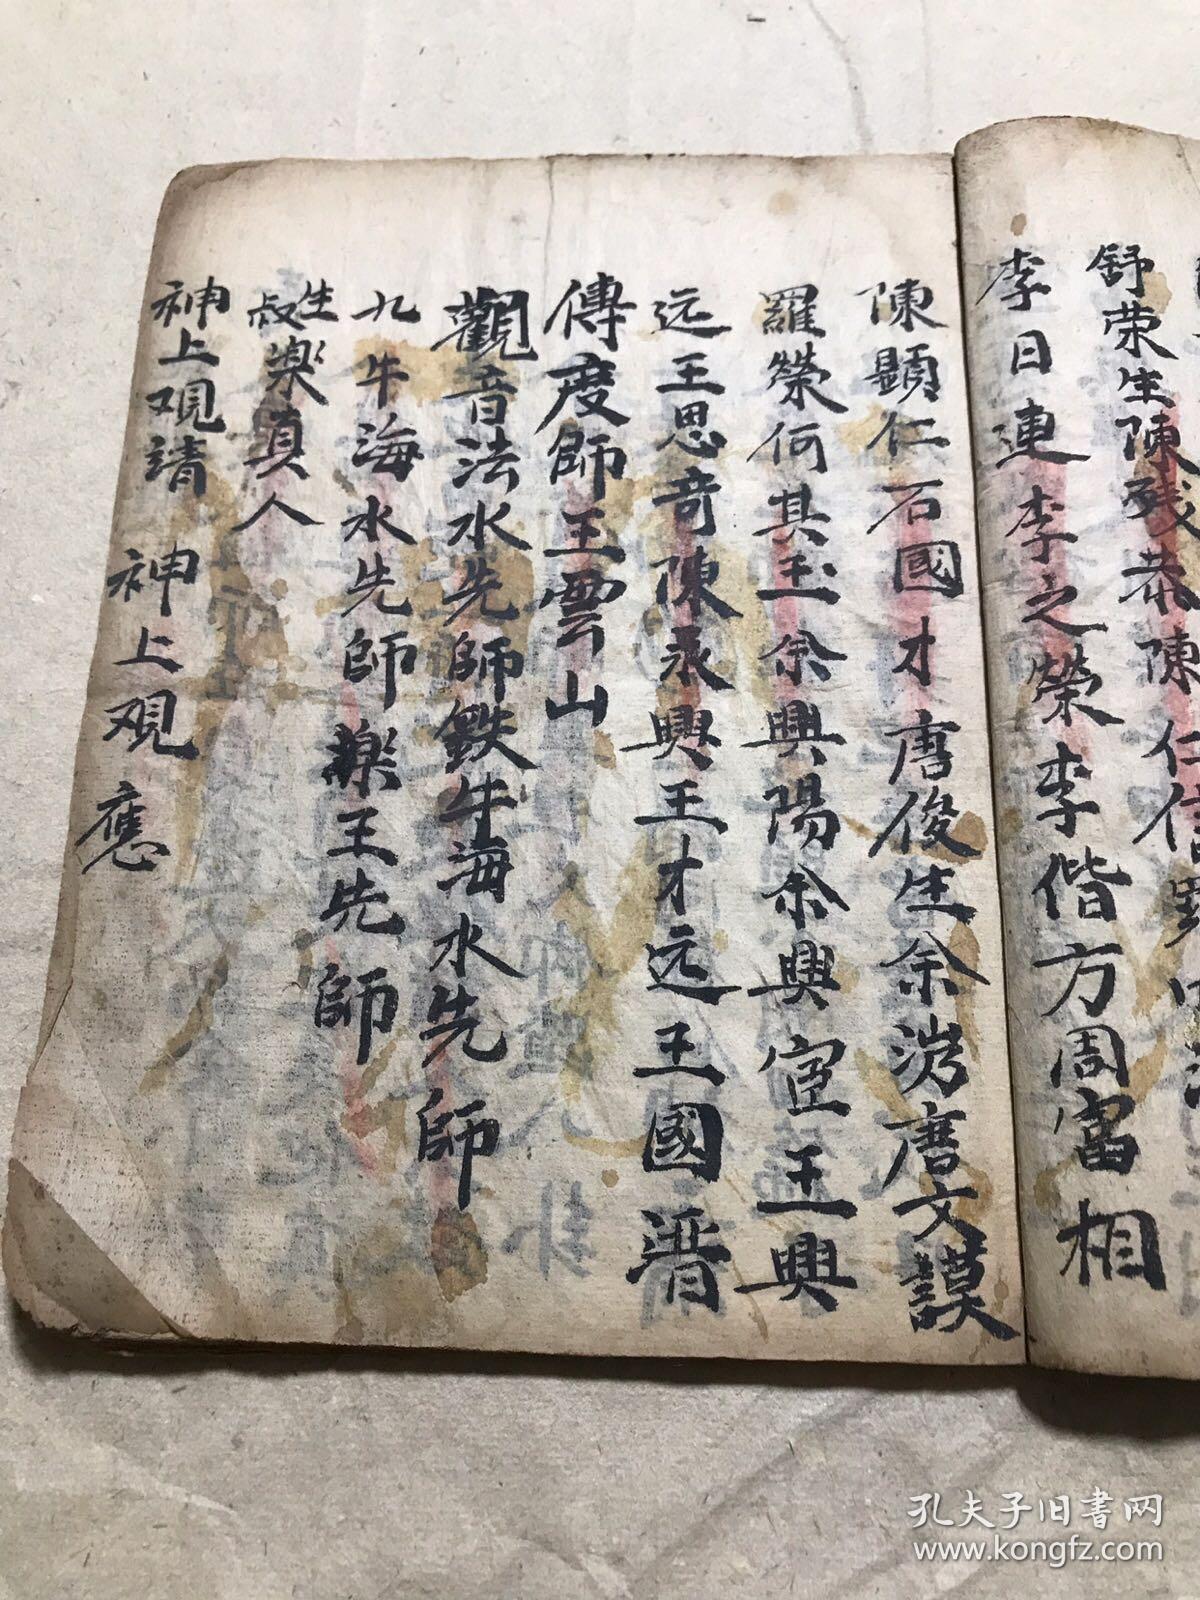 舒荣生陳残恭陳仁
李日連李之榮李偕方周富相
陳顕仁石國才唐俊生余滂唐文謨
羅榮何其玉余興陽余興宦王興
远王思奇陳永興王才远王國晋
傳度師王雲山
觀音法水先師鉄牛海水先師
九牛海水先師藥王先師
生
叔楽真人
神上观請 神上观應
孔夫子旧书网
www.kongfz.com